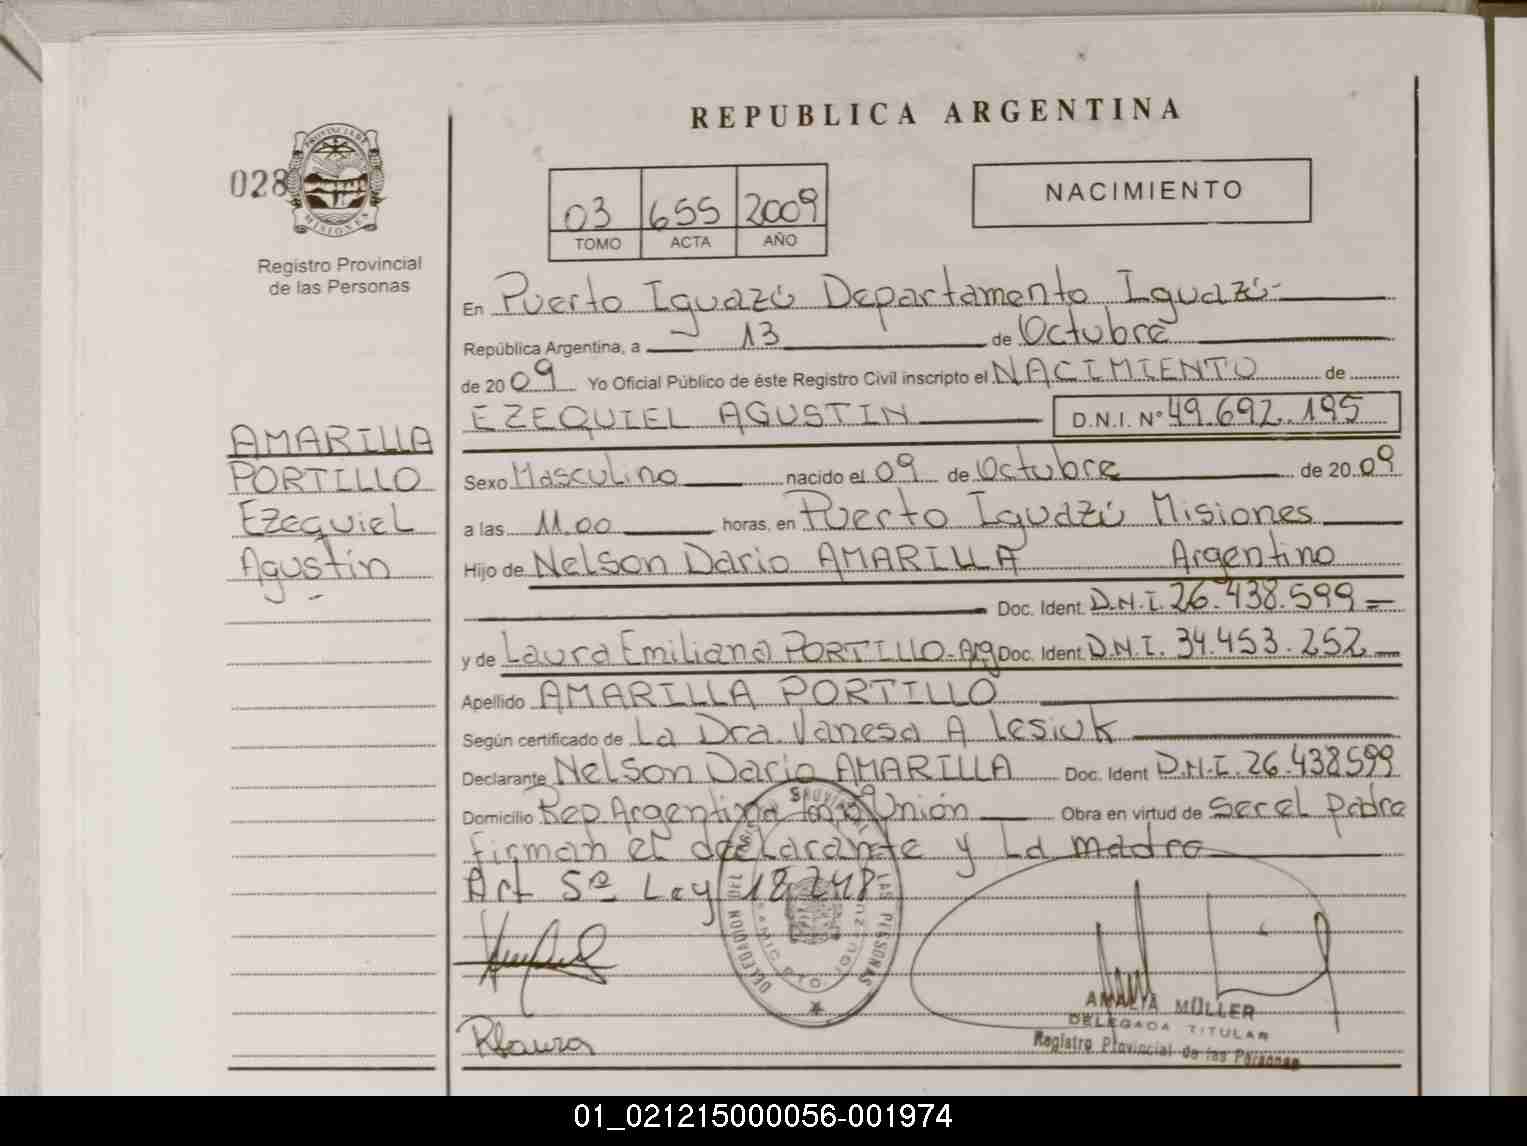 REPUBLICA ARGENTINA
028
PROVINCIA DE
MISIONES
Registro Provincial
de las Personas
03 655 2009
TOMO ACTA AÑO
NACIMIENTO
En Puerto Iguazú Departamento Iguazú
República Argentina, a 13 de Octubre
de 2009 Yo Oficial Público de éste Registro Civil inscripto el NACIMIENTO de
EZEQUIEL AGUSTIN D.N.I. Nº 49.692.195
AMARILLA
PORTILLO
Ezequiel
Agustín
Sexo Masculino nacido el 09 de Octubre de 2009
a las 11.00 horas, en Puerto Iguazú Misiones
Hijo de Nelson Dario AMARILLA Argentino
Doc. Ident. D.N.I. 26.438.599=
y de Laura Emiliana PORTILLO-Arg Doc. Ident. D.N.I. 34.453.252
Apellido AMARILLA PORTILLO
Según certificado de La Dra. Vanesa A Lesiuk
Declarante Nelson Dario AMARILLA Doc. Ident D.N.I. 26.438599
Domicilio Rep Argentina Unión Obra en virtud de Ser el padre
firman el declarante y La madre
Art 5º Ley 18.248
DELEGACION DEL LAS PERSONAS
PTO. IGUAZU
Plaura
AMALIA MÜLLER
DELEGADA TITULAR
Registro Provincial de las Personas
01_021215000056-001974